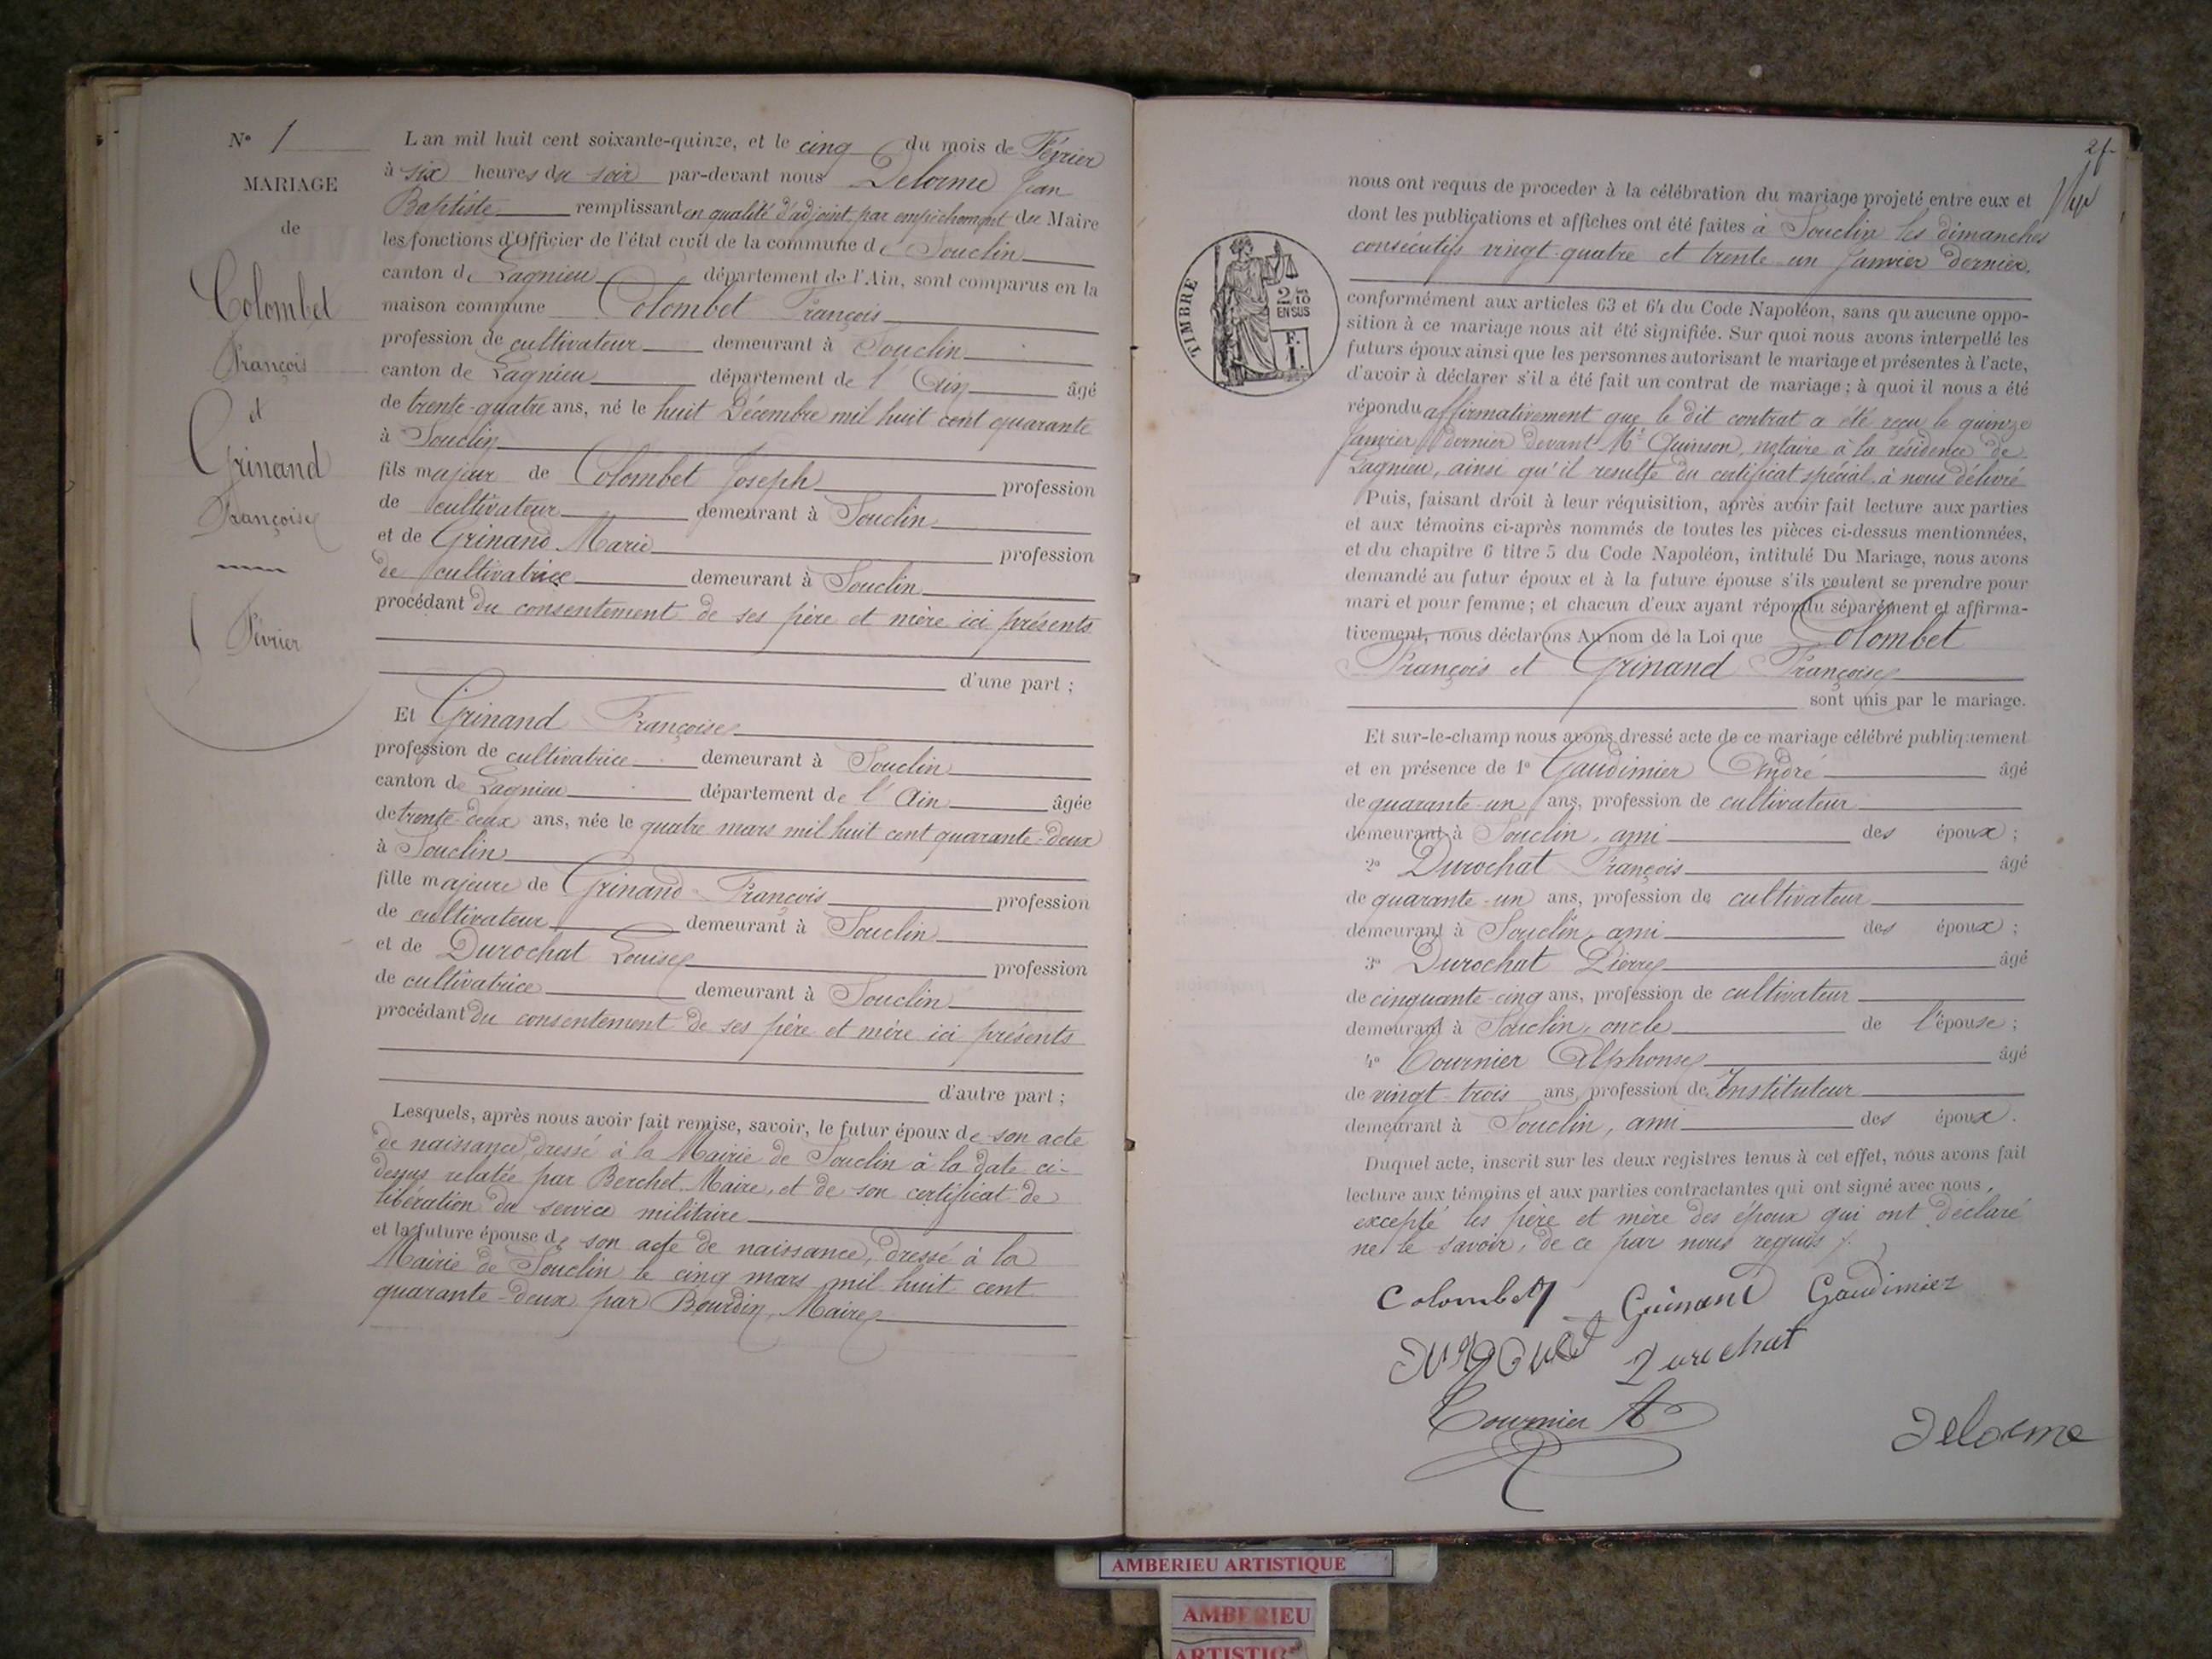 N° 1
MARIAGE
de
Colombet
François
et
Grinand
Françoise
Février
L'an mil huit cent soixante-quinze, et le cinq du mois de Février
à six heures du soir par-devant nous Delorme Jean
Baptiste remplissant en qualité d'adjoint par empêchement du Maire
les fonctions d'Officier de l'état civil de la commune de Souclin
canton de Lagnieu département de l'Ain, sont comparus en la
maison commune Colombet François
profession de cultivateur demeurant à Souclin
canton de Lagnieu département de l'Ain âgé
de trente-quatre ans, né le huit Décembre mil huit cent quarante
à Souclin
fils majeur de Colombet Joseph profession
de cultivateur demeurant à Souclin
et de Grinand Marie profession
de cultivatrice demeurant à Souclin
procédant du consentement de ses père et mère ici présents
d'une part ;
Et Grinand Françoise
profession de cultivatrice demeurant à Souclin
canton de Lagnieu département de l'Ain âgée
de trente-deux ans, née le quatre mars mil huit cent quarante-deux
à Souclin
fille majeure de Grinand François profession
de cultivateur demeurant à Souclin
et de Durochat Louise profession
de cultivatrice demeurant à Souclin
procédant du consentement de ses père et mère ici présents
d'autre part ;
Lesquels, après nous avoir fait remise, savoir, le futur époux de son acte
de naissance, dressé à la Mairie de Souclin à la date ci-
dessus relatée par Berchet Maire, et de son certificat de
libération du service militaire
et la future épouse de son acte de naissance, dressé à la
Mairie de Souclin le cinq mars mil huit cent
quarante-deux par Bourdin, Maire
2f
nous ont requis de proceder à la célébration du mariage projeté entre eux et
dont les publications et affiches ont été faites à Souclin les dimanches
consécutifs vingt-quatre et trente-un Janvier dernier.
TIMBRE
2/10
EN SUS
F.
1
conformément aux articles 63 et 64 du Code Napoléon, sans qu'aucune oppo-
sition à ce mariage nous ait été signifiée. Sur quoi nous avons interpellé les
futurs époux ainsi que les personnes autorisant le mariage et présentes à l'acte,
d'avoir à déclarer s'il a été fait un contrat de mariage ; à quoi il nous a été
répondu affirmativement que le dit contrat a été reçu le quinze
Janvier dernier devant Me Quinson, notaire à la résidence de
Lagnieu, ainsi qu'il resulte du certificat spécial à nous délivré
Puis, faisant droit à leur réquisition, après avoir fait lecture aux parties
et aux témoins ci-après nommés de toutes les pièces ci-dessus mentionnées,
et du chapitre 6 titre 5 du Code Napoléon, intitulé Du Mariage, nous avons
demandé au futur époux et à la future épouse s'ils veulent se prendre pour
mari et pour femme ; et chacun d'eux ayant répondu séparément et affirma-
tivement, nous déclarons Au nom de la Loi que Colombet
François et Grinand Françoise
sont unis par le mariage.
Et sur-le-champ nous avons dressé acte de ce mariage célébré publiquement
et en présence de 1° Gaudimier André âgé
de quarante-un ans, profession de cultivateur
demeurant à Souclin, ami des époux ;
2° Durochat François âgé
de quarante-un ans, profession de cultivateur
demeurant à Souclin, ami des époux ;
3° Durochat Pierre âgé
de cinquante-cinq ans, profession de cultivateur
demeurant à Souclin, oncle de l'épouse ;
4° Tournier Alphonse âgé
de vingt-trois ans, profession de Instituteur
demeurant à Souclin, ami des époux.
Duquel acte, inscrit sur les deux registres tenus à cet effet, nous avons fait
lecture aux témoins et aux parties contractantes qui ont signé avec nous,
excepté les père et mère des époux qui ont déclaré
ne le savoir, de ce par nous requis
Colombet Grinand Gaudimier
Durochat
Tournier A
Delorme
AMBERIEU ARTISTIQUE
AMBERIEU
ARTISTIQ